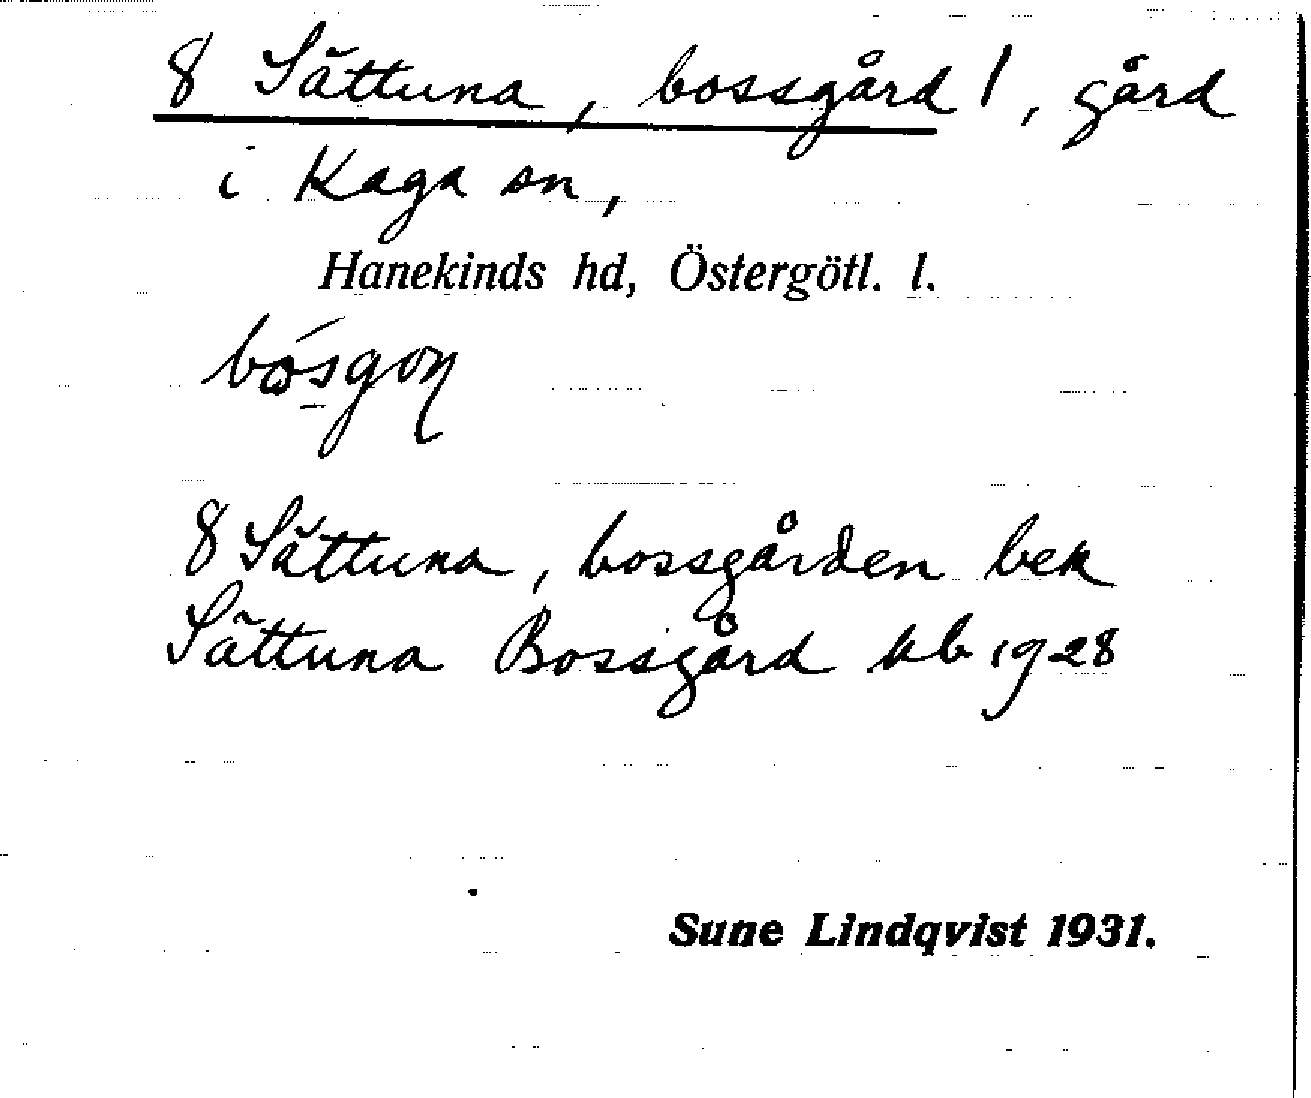 8 Sättuna, bossgård !, gård
i Kaga sn,
Hanekinds hd, Östergötl. l.
8 Sättuna, bossgården bek
Sättuna Bossgård kb 1928
Sune Lindqvist 1931.